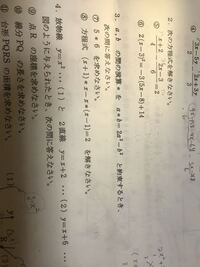 ④ (3x-5y)/2 - (2x-3y)/3
2. 次の方程式を解きなさい。
⑤ (x+2)/4 - (x-3)/6 = 2
⑥ 2(x-3)² = -3(5x-8)+14
3. a, b の間の演算 * を a*b=2a²-b² と約束するとき、
次の問に答えなさい。
⑦ 5*6 を求めなさい。
⑧ 方程式 (x+1)*x-x*(x-1)=2 を解きなさい。
4. 放物線 y=x² … (1) と 2直線 y=x+2 … (2) y=x+6 …
図のように与えられたとき、次の問に答えなさい。
⑨ 点Rの座標を求めなさい。
⑩ 線分PQの を求めなさい。
台形PQRSの面積を求めなさい。